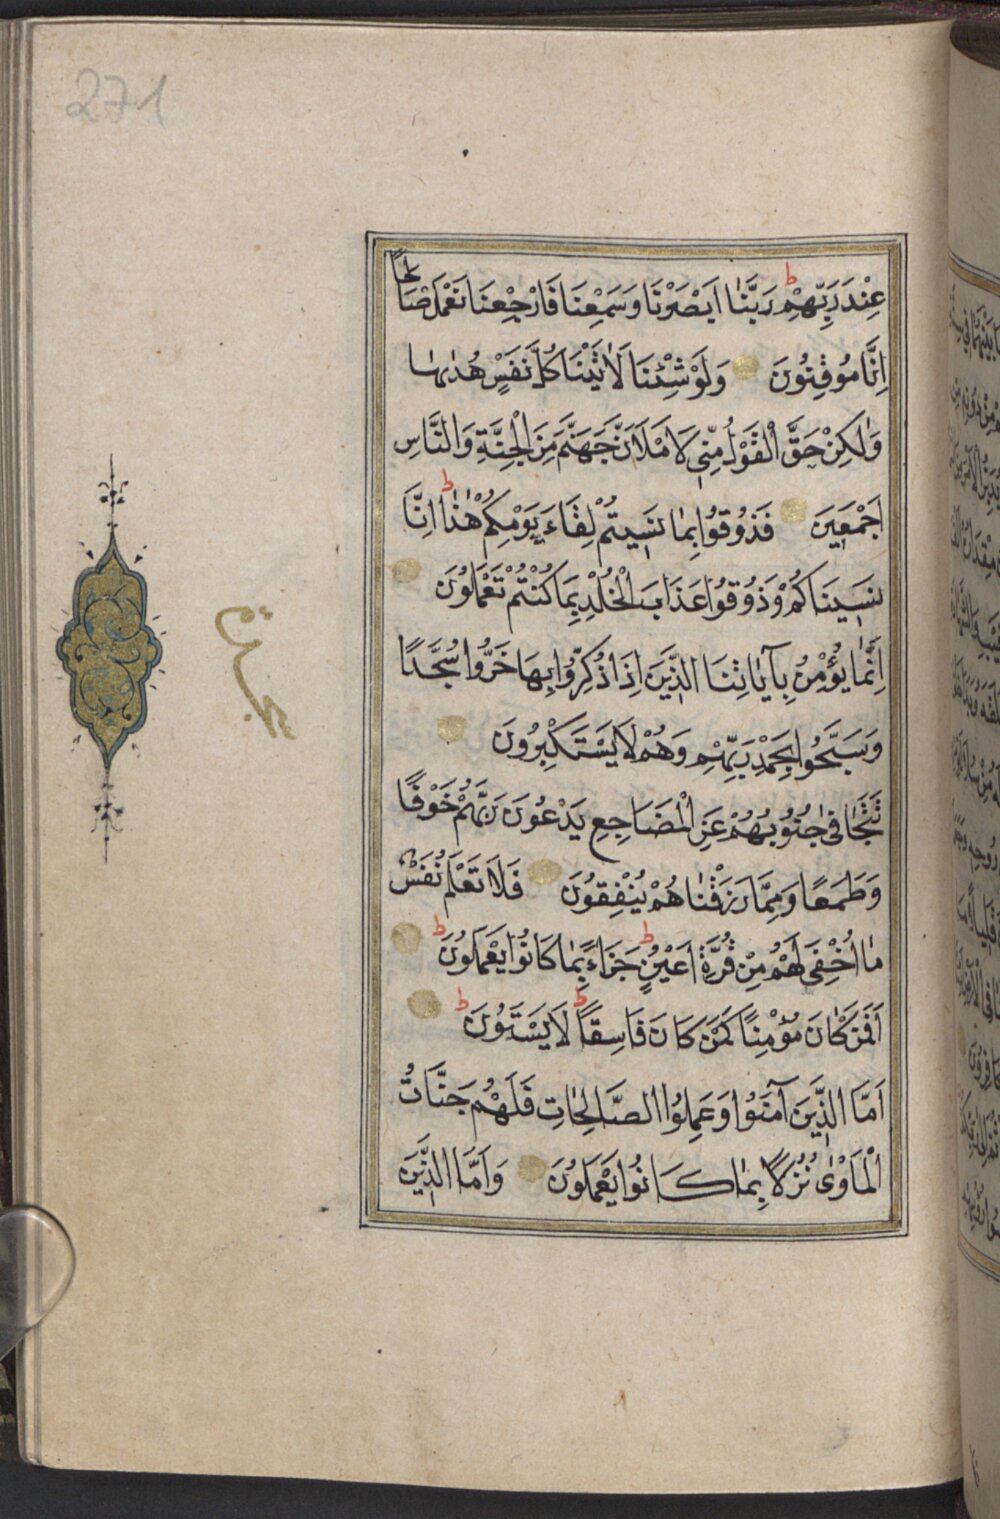 271
عِنْدَ رَبِّهِمْ ط رَبَّنَا اَبْصَرْنَا وَسَمِعْنَا فَارْجِعْنَا نَعْمَلْ صَالِحًا
اِنَّا مُوقِنُونَ وَلَوْ شِئْنَا لَاٰتَيْنَا كُلَّ نَفْسٍ هُدٰيهَا
وَلٰكِنْ حَقَّ الْقَوْلُ مِنِّى لَاَمْلَاَنَّ جَهَنَّمَ مِنَ الْجِنَّةِ وَالنَّاسِ
اَجْمَعِينَ فَذُوقُوا بِمَا نَسِيتُمْ لِقَاءَ يَوْمِكُمْ هٰذَا ط اِنَّا
نَسِينَاكُمْ وَذُوقُوا عَذَابَ الْخُلْدِ بِمَا كُنْتُمْ تَعْمَلُونَ
اِنَّمَا يُؤْمِنُ بِآيَاتِنَا الَّذِينَ اِذَا ذُكِّرُوا بِهَا خَرُّوا سُجَّدًا
وَسَبَّحُوا بِحَمْدِ رَبِّهِمْ وَهُمْ لَا يَسْتَكْبِرُونَ
تَتَجَافٰى جُنُوبُهُمْ عَنِ الْمَضَاجِعِ يَدْعُونَ رَبَّهُمْ خَوْفًا
وَطَمَعًا وَمِمَّا رَزَقْنَاهُمْ يُنْفِقُونَ فَلَا تَعْلَمُ نَفْسٌ
مَا اُخْفِىَ لَهُمْ مِنْ قُرَّةِ اَعْيُنٍ ط جَزَاءً بِمَا كَانُوا يَعْمَلُونَ ط
اَفَمَنْ كَانَ مُؤْمِنًا كَمَنْ كَانَ فَاسِقًا ط لَا يَسْتَوُونَ ط
اَمَّا الَّذِينَ آمَنُوا وَعَمِلُوا الصَّالِحَاتِ فَلَهُمْ جَنَّاتُ
الْمَاْوٰى نُزُلًا بِمَا كَانُوا يَعْمَلُونَ وَاَمَّا الَّذِينَ
سجدة